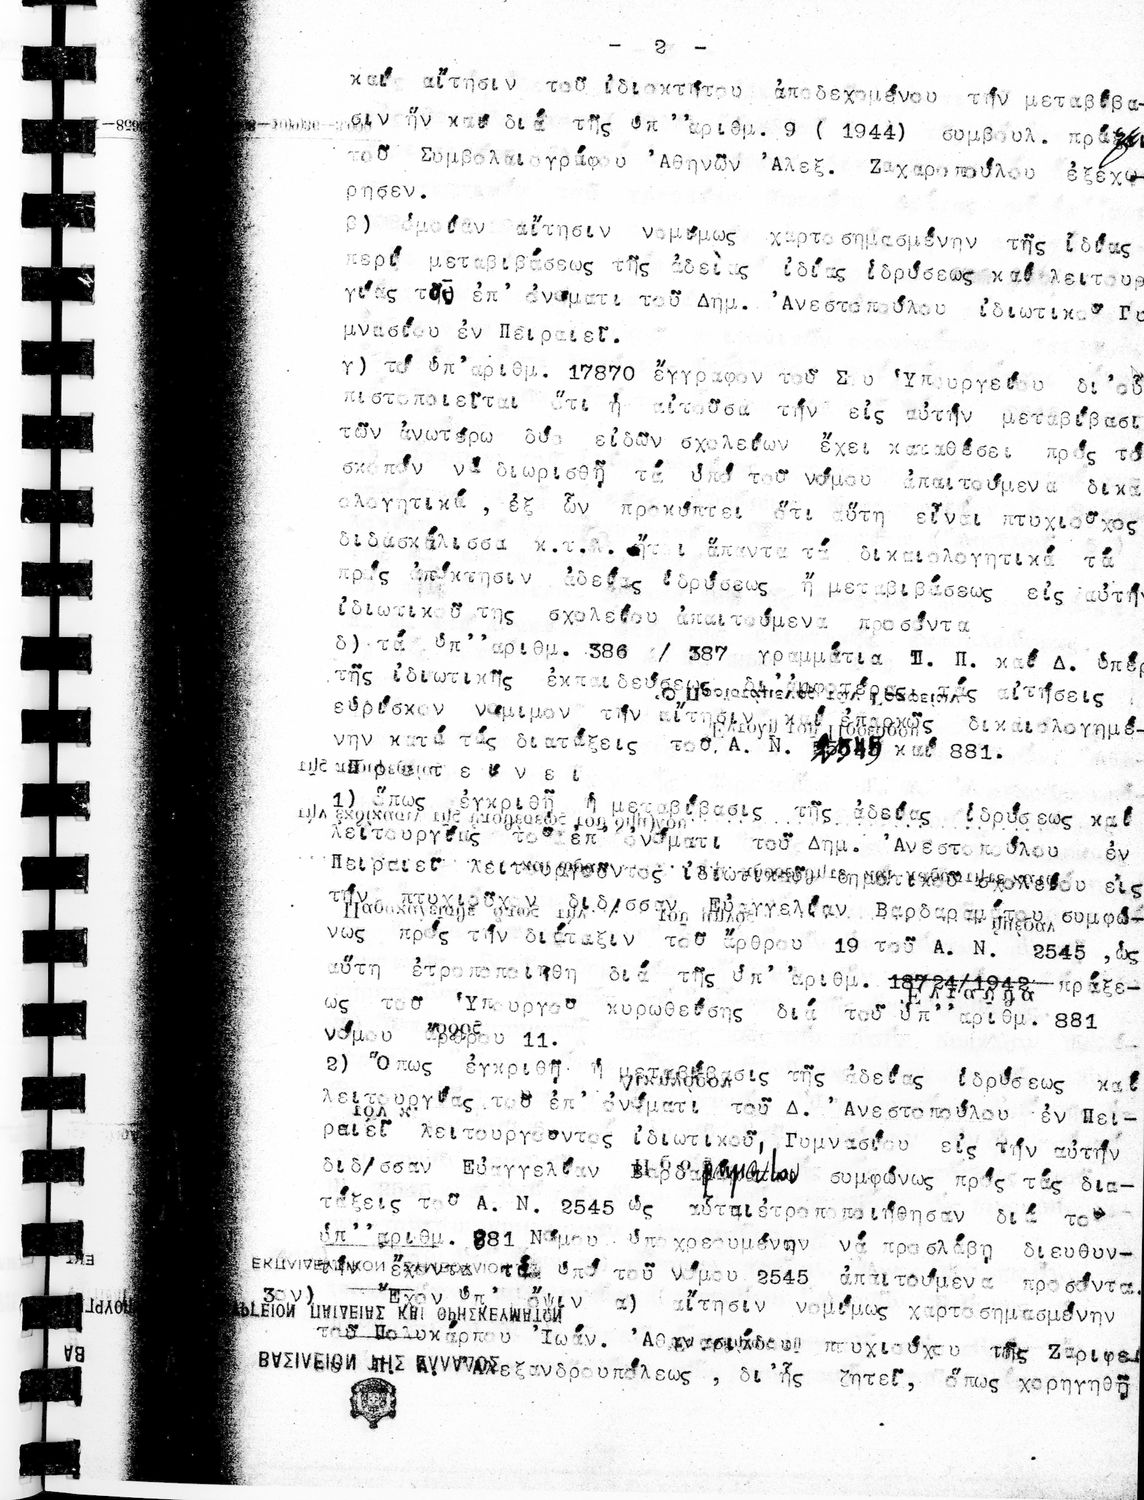 - 2 -
καί αἴτησιν τοῦ ἰδιοκτήτου ἀποδεχομένου τήν μεταβίβα-
σιν ἥν καί διά τῆς ὑπ' 'ἀριθμ. 9 ( 1944) συμβουλ. πράξεως
τοῦ Συμβολαιογράφου 'Αθηνῶν 'Αλεξ. Ζαχαροπούλου ἐξεχώ-
ρησεν.
β) ὁμοίαν αἴτησιν νομίμως χαρτοσημασμένην τῆς ἰδίας
περί μεταβιβάσεως τῆς ἀδείας ἰδίας ἱδρύσεως καί λειτουρ
γίας τοῦ ἐπ' ὀνόματι τοῦ Δημ. 'Ανεστοπούλου ἰδιωτικοῦ Γυ
μνασίου ἐν Πειραιεῖ.
γ) τό ὑπ'ἀριθμ. 17870 ἔγγραφον τοῦ Σου Ὑπουργείου δι'οὗ
πιστοποιεῖται ὅτι ἡ αἰτοῦσα τήν εἰς αὐτήν μεταβίβασι
τῶν ἀνωτέρω δύο εἰδῶν σχολείων ἔχει καταθέσει πρός τό
σκοπόν νά διωρισθῇ τά ὑπό τοῦ νόμου ἀπαιτούμενα δικα
ολογητικά , ἐξ ὧν προκύπτει ὅτι αὕτη εἶναι πτυχιοῦχος
διδασκάλισσα κ.τ.λ. ἤτοι ἅπαντα τά δικαιολογητικά τά
πρός ἀπόκτησιν ἀδείας ἱδρύσεως ἤ μεταβιβάσεως εἰς αὐτήν
ἰδιωτικοῦ της σχολείου ἀπαιτούμενα προσόντα
δ) τά ὑπ' 'ἀριθμ. 386 / 387 γραμμάτια Π. Π. καί Δ. ὑπέρ
τῆς ἰδιωτικῆς ἐκπαιδεύσεως δι'ἀμφοτέρας τάς αἰτήσεις
εὑρίσκον νόμιμον τήν αἴτησιν καί ἐπαρκῶς δικαιολογημέ-
νην κατά τάς διατάξεις τοῦ Α. Ν. 2545 καί 881.
Π ρ ο τ ε ί ν ε ι
1) ὅπως ἐγκριθῇ ἡ μεταβίβασις τῆς ἀδείας ἱδρύσεως καί
λειτουργίας τοῦ ἐπ' ὀνόματι τοῦ Δημ. 'Ανεστοπούλου ἐν
Πειραιεῖ λειτουργοῦντος ἰδιωτικοῦ δημοτικοῦ σχολείου εἰς
τήν πτυχιοῦχον διδ/σσαν Εὐαγγελίαν Βαρδαραμάτου συμφώ-
νως πρός τήν διάταξιν τοῦ ἄρθρου 19 τοῦ Α. Ν. 2545 ,ὡς
αὕτη ἐτροποποιήθη διά τῆς ὑπ' 'ἀριθμ. 18724/1942 πράξε-
ως τοῦ Ὑπουργοῦ κυρωθείσης διά τοῦ ὑπ' 'ἀριθμ. 881
νόμου ἄρθρου 11.
2) Ὅπως ἐγκριθῇ ἡ μεταβίβασις τῆς ἀδείας ἱδρύσεως καί
λειτουργίας τοῦ ἐπ' ὀνόματι τοῦ Δ. 'Ανεστοπούλου ἐν Πει-
ραιεῖ λειτουργοῦντος ἰδιωτικοῦ, Γυμνασίου εἰς τήν αὐτήν
διδ/σσαν Εὐαγγελίαν συμφώνως πρός τάς δια-
τάξεις τοῦ Α. Ν. 2545 ὡς αὗται ἐτροποποιήθησαν διά τοῦ
ὑπ' 'ἀριθμ. 881 Νόμου ὑποχρεουμένην νά προσλάβῃ διευθυν-
τήν ἔχοντα τά ὑπό τοῦ νόμου 2545 ἀπαιτούμενα προσόντα.
3ον) Ἔχον ὑπ' ὄψιν α) αἴτησιν νομίμως χαρτοσημασμένην
τοῦ Πολυκάρπου 'Ιωάν. πτυχιούχου τῆς Ζαριφεί
'Αλεξανδρουπόλεως , δι'ἧς ζητεῖ, ὅπως χορηγηθῇ
ΒΑΣΙΛΕΙΟΝ ΤΗΣ ΕΛΛΑΔΟΣ